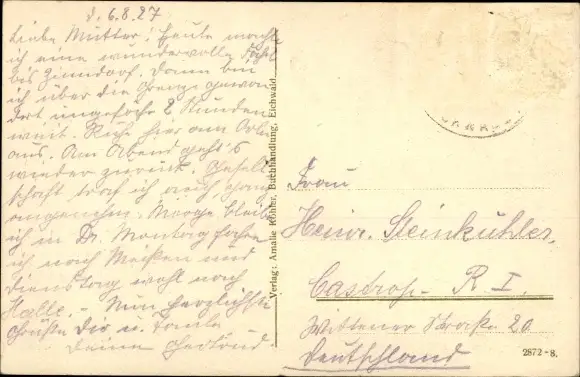 d. 6.8.27
Liebe Mutter! Heute mache
ich eine wundervolle
bis Zinndorf. Dann bin
ich über die Grenze gewan-
dert ungefähr 2 Stunden
weit. Ruhe hier am
aus. Am Abend geht's
wieder zurück. Gesell-
schaft traf ich auch ganz
angenehm. Morgen bleibe
ich in Dr. Montag fahre
ich nach Meißen und
Dienstag wohl nach
Halle. - Nun herzlichste
Grüße Dir u. Tante
Deine Gertrud.
Verlag: Amalie Köhler, Buchhandlung, Eichwald
Frau
Heinr. Steinkühler,
Castrop- R I.
Wittener Straße 20
Deutschland
2872-8.